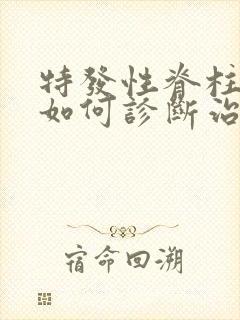 特發性脊柱
如何診斷治
宿命回溯